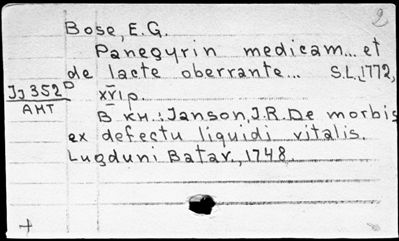 2
Bose, E.G.
Panegyrin medicam... et
de lacte oberrante... S.L., 1772,
XVI p.
Jj 352D
АНТ
В кн.: Janson, J.R. De morbis
ex defectu liquidi vitalis.
Lugduni Batav., 1748.